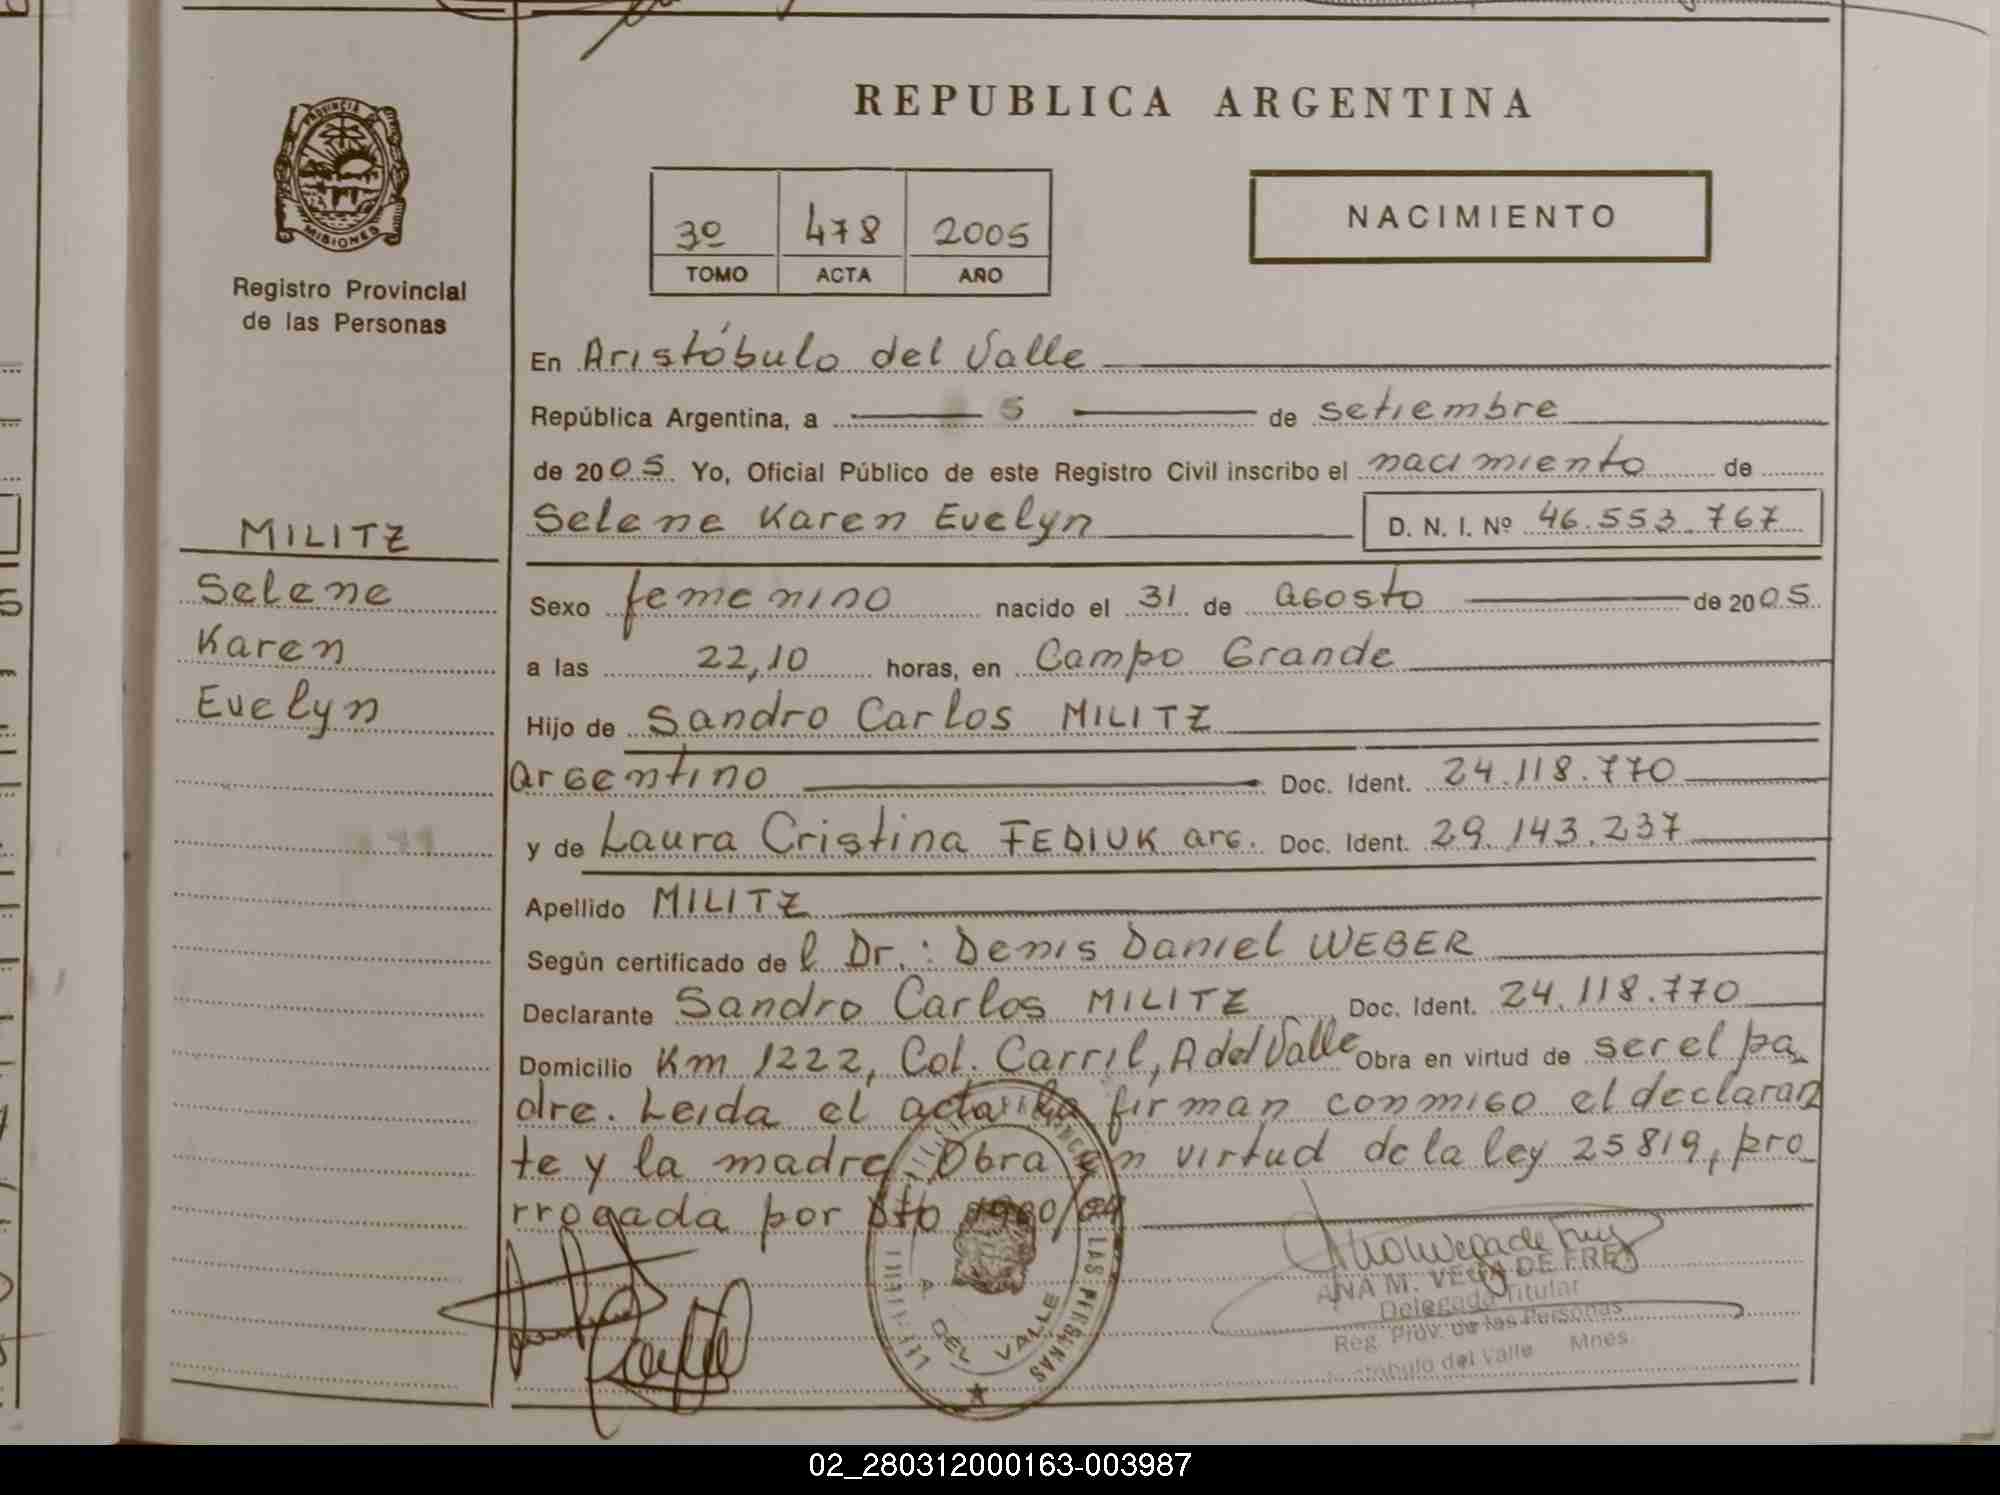 REPUBLICA ARGENTINA
PROVINCIA DE
MISIONES
Registro Provincial
de las Personas
3º 478 2005
TOMO ACTA AÑO
NACIMIENTO
En Aristóbulo del Valle
República Argentina, a 5 de setiembre
de 2005 Yo, Oficial Público de este Registro Civil inscribo el nacimiento de
Selene Karen Evelyn D. N. I. Nº 46.553.767
MILITZ
Selene
Karen
Evelyn
Sexo femenino nacido el 31 de agosto de 2005
a las 22,10 horas, en Campo Grande
Hijo de Sandro Carlos MILITZ
argentino Doc. Ident. 24.118.770
y de Laura Cristina FEDIUK arg. Doc. Ident. 29.143.237
Apellido MILITZ
Según certificado del Dr.: Denis Daniel WEBER
Declarante Sandro Carlos MILITZ Doc. Ident. 24.118.770
Domicilio Km 1222, Col. Carril, A del Valle Obra en virtud de ser el pa
dre. Leida el acta la firman conmigo el declaran
te y la madre. Obra en virtud de la ley 25819, pro
rrogada por Dto 1900/04
LAS PERSONAS
A. DEL VALLE
ANA M. VEGA DE FREY
Delegada Titular
Reg. Prov. de las Personas
del Valle Mnes
02_280312000163-003987